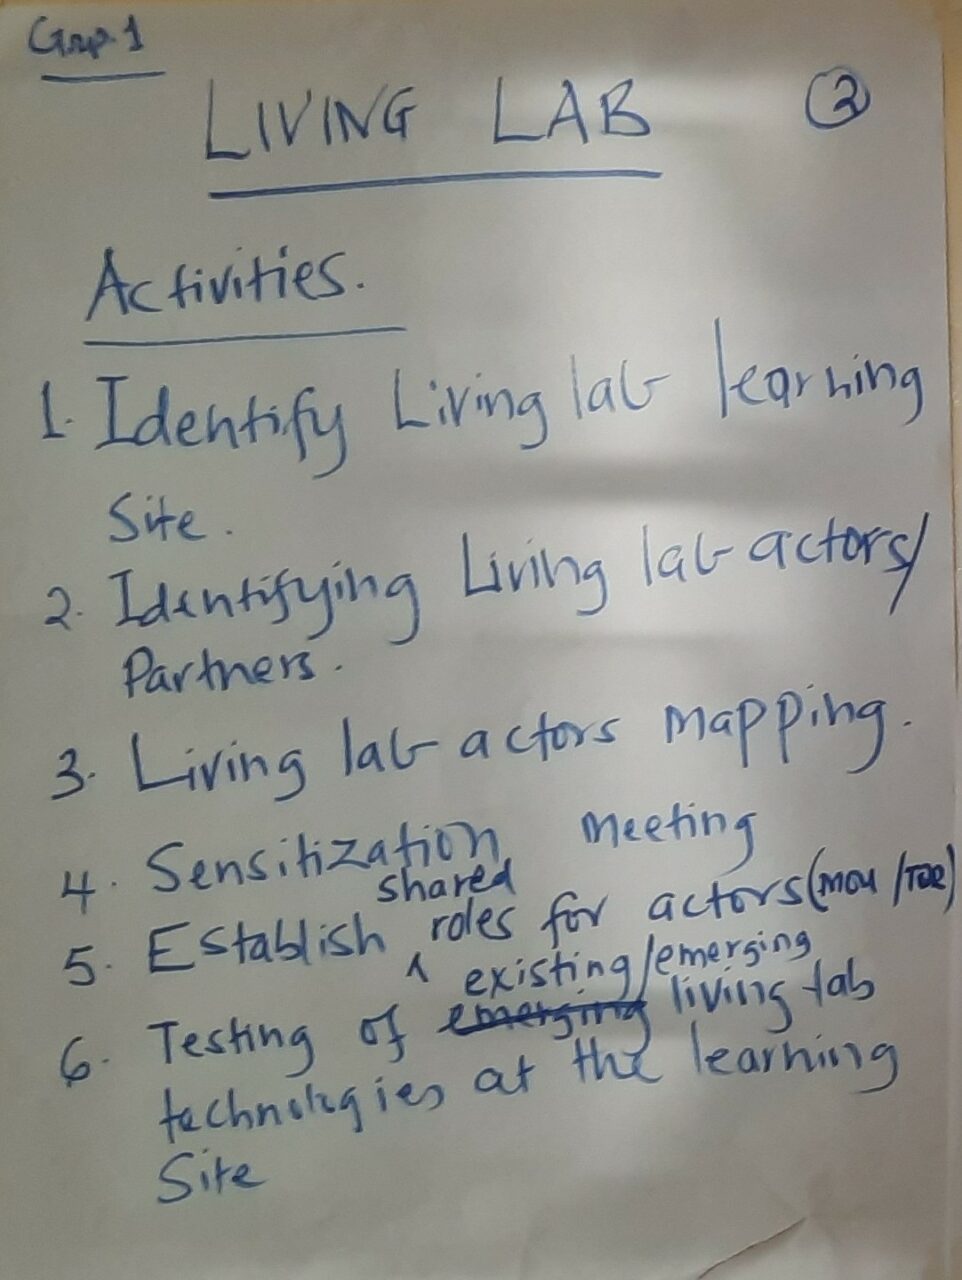 Grp. 1
LIVING LAB
2
Activities.
1. Identify Living lab learning
Site.
2. Identifying Living lab actors/
Partners.
3. Living lab actors mapping.
4. Sensitization meeting
shared
5. Establish ^ roles for actors (MOU /TOR)
existing/emerging
6. Testing of emerging living lab
technologies at the learning
Site